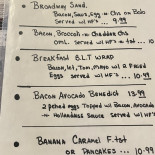 Broadway Sand.
Bacon, Saus, Egg + Chs on Bolo
Served w/ HF's ... 9.99
Bacon, Broccoli + Cheddar Chs
Oml. Served w/ HF's + tst ... 10.99
Breakfast BLT wrap
Bacon, Let, Tom, Mayo w/ 2 Fried
Eggs served w/ HF's ... 10.99
Bacon Avocado Benedict 13.99
2 poched eggs Topped w/ Bacon, Avocado,
+ Hollandaise Sauce served w/ HF's
Banana Caramel F.tst
or Pancakes ... 10.99